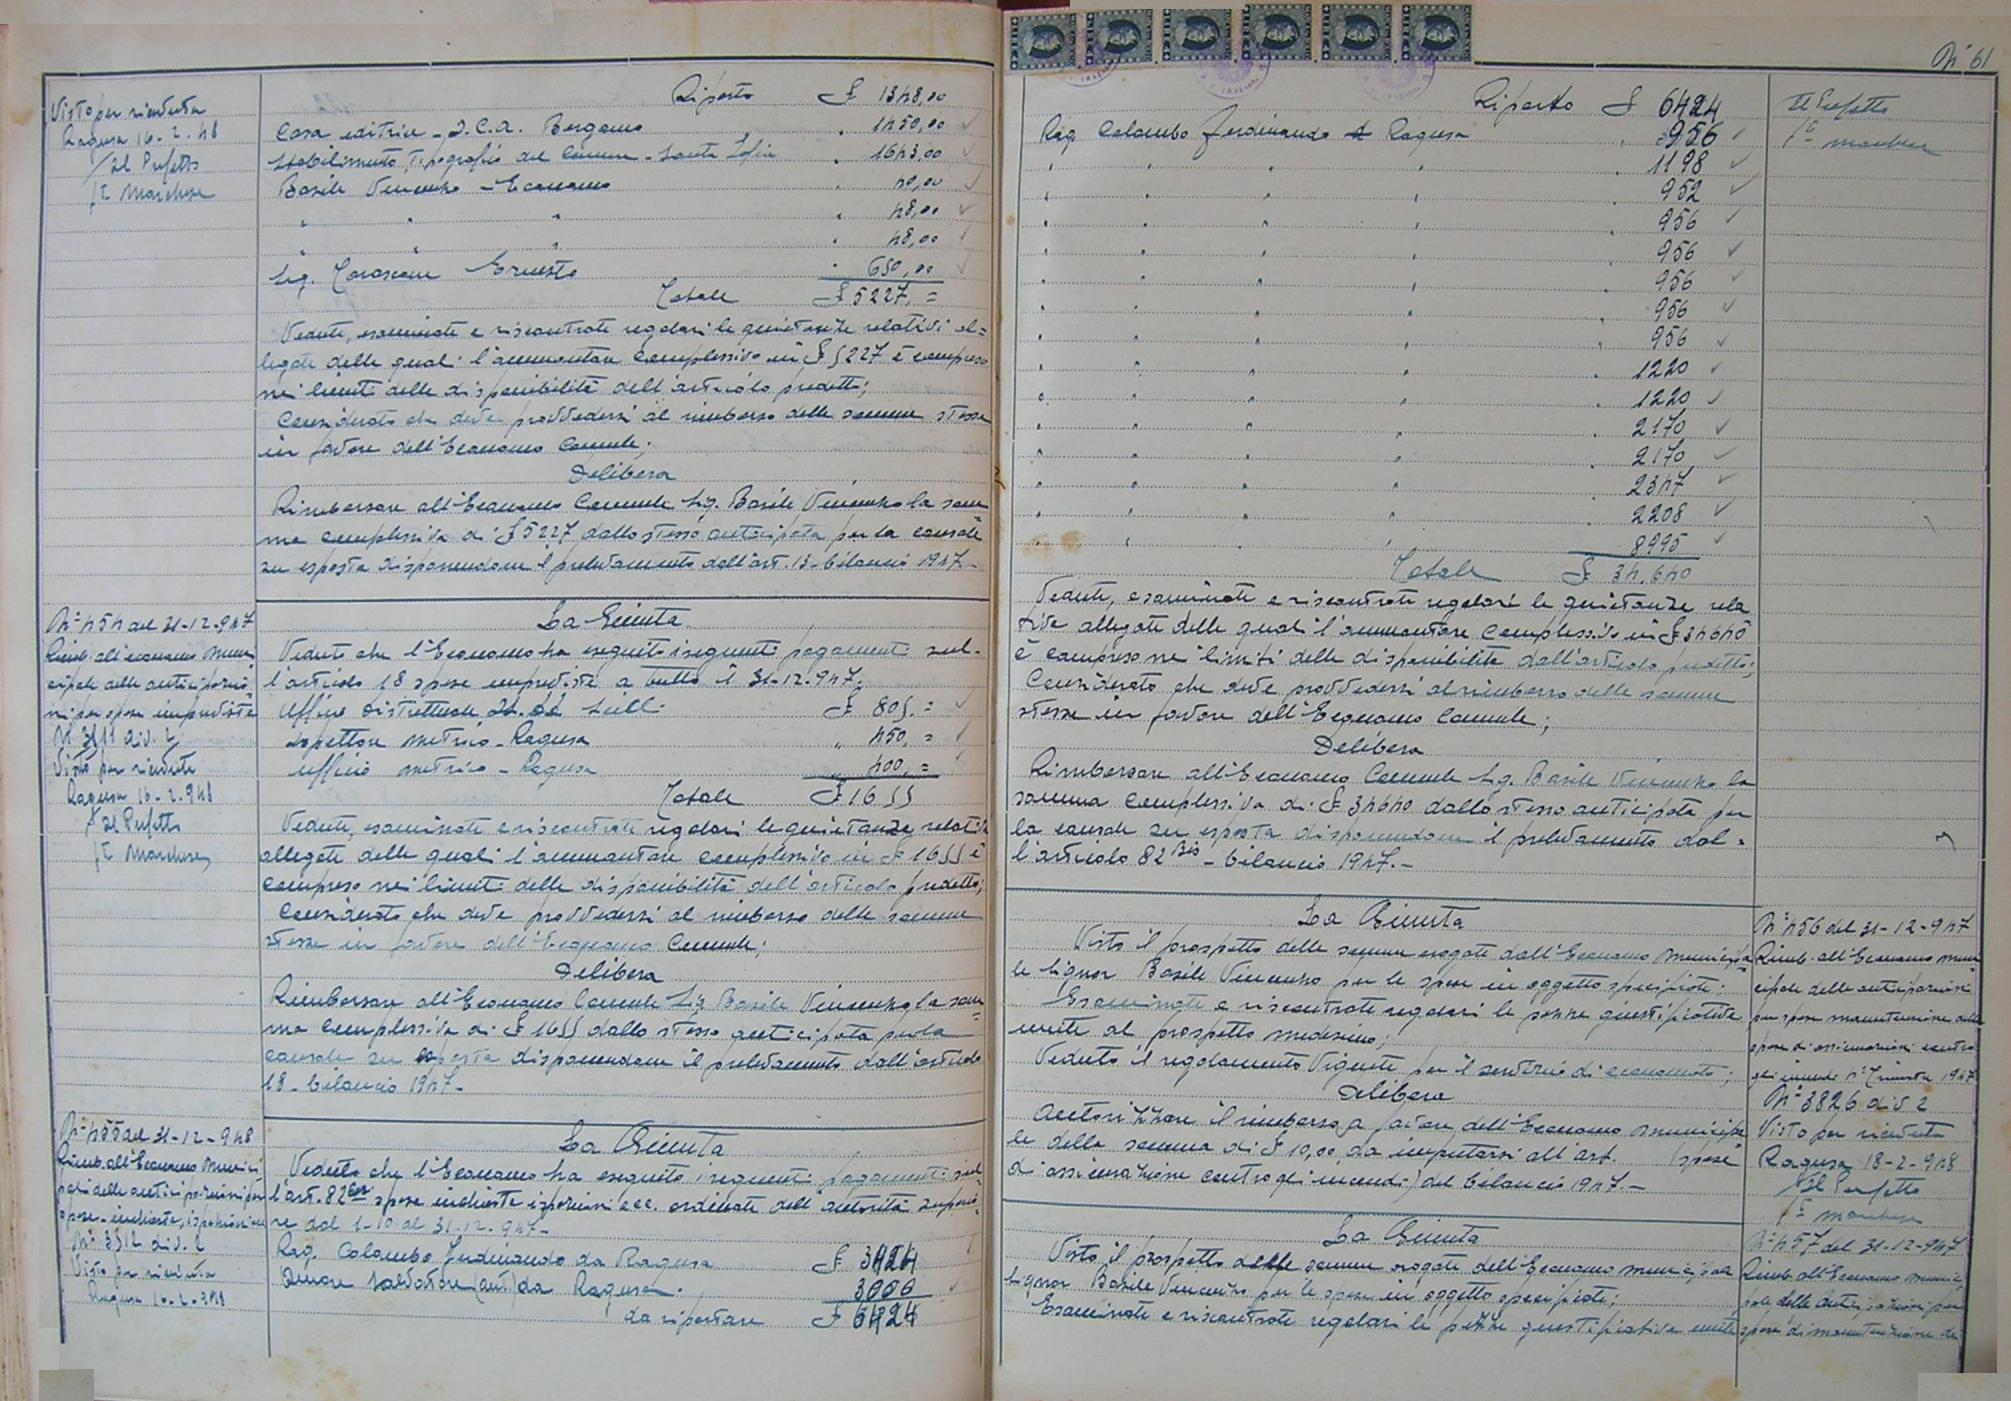 Riporto £ 1348,00
Casa editrice - I.C.A. Bergamo " 1450,00
Stabilimento Tipografico dei Comuni - Santa Sofia " 1643,00
Basile Vincenzo - Economo " 40,00
" " " " 48,00
" " " " 48,00
Sig. Ernesto " 650,00
Totale £ 5227,=
Vedute, esaminate e riscontrate regolari le quietanze relativi al=
legate delle quali l'ammontare complessivo in £ 5227 è compreso
nei limiti delle disponibilità dell'articolo predetto;
Considerato che deve provvedersi al rimborso delle somme stesse
in favore dell'Economo Comunale;
Delibera
Rimborsare all'Economo Comunale Sig. Basile Vincenzo la som=
ma complessiva di £ 5227 dallo stesso anticipata per la causale
su esposta disponendone il prelevamento dall'art. 13 - bilancio 1947.-
Visto per ricevuta
Ragusa 16-2-48
Il Prefetto
f.to Marchese
N° 454 del 31-12-947
Rimb. all'economo Muni
cipale delle anticipazio
ni per spese impreviste
N 3511 div. 2
Visto per ricevuta
Ragusa 16-2-948
Il Prefetto
f.to Marchese
La Giunta
Veduto che l'Economo ha eseguito i seguenti pagamenti sul-
l'articolo 18 spese impreviste a tutto il 31-12-947.
Ufficio Distrettuale £ 805.=
Ispettore Metrico - Ragusa " 450,=
Ufficio metrico - Ragusa " 400,=
Totale £ 1655
Vedute, esaminate e riscontrate regolari le quietanze relative
allegate delle quali l'ammontare complessivo in £ 1655 è
compreso nei limiti delle disponibilità dell'articolo predetto;
Considerato che deve provvedersi al rimborso delle somme
stesse in favore dell'Economo Comunale;
Delibera
Rimborsare all'Economo Comunale Sig. Basile Vincenzo la som=
ma complessiva di £ 1655 dallo stesso anticipata per la
causale su esposta disponendone il prelevamento dall'articolo
18 - bilancio 1947.-
N° 455 del 31-12-948
Rimb. all'Economo Munici
pale delle anticipazioni per
spese inchieste, ispezioni ecc
N° 3512 div. 2
Visto per ricevuta
Ragusa 16-2-948
La Giunta
Veduto che l'Economo ha eseguito i seguenti pagamenti sul=
l'art. 82 spese inchieste ispezioni ecc. ordinate dall'autorità superio=
re dal 1-10 al 31-12-947-
Rag. Colombo Ferdinando da Ragusa £ 3424
Salvatore (aut) da Ragusa. 3000
da riportare £ 6424
N° 61
Riporto £ 6424
Rag. Colombo Ferdinando Ragusa " 956
" " " " " 1198
" " " " " 952
" " " " " 956
" " " " " 956
" " " " " 956
" " " " " 956
" " " " " 956
" " " " " 1220
" " " " " 1220
" " " " " 2170
" " " " " 2170
" " " " " 2347
" " " " " 2208
" " " " 8995
Totale £ 34.640
Il Prefetto
f.to Marchese
Vedute, esaminate e riscontrate regolari le quietanze rela
tive allegate delle quali l'ammontare complessivo in £ 34640
è compreso nei limiti delle disponibilità dell'articolo predetto;
Considerato che deve provvedersi al rimborso delle somme
stesse in favore dell'Economo Comunale;
Delibera
Rimborsare all'Economo Comunale Sig. Basile Vincenzo la
somma complessiva di £ 34640 dallo stesso anticipata per
la causale su esposta disponendone il prelevamento dal=
l'articolo 82 Bis - bilancio 1947.-
La Giunta
Visto il prospetto delle somme erogate dall'Economo Municipa=
le Signor Basile Vincenzo per le spese in oggetto specificate;
Esaminate e riscontrate regolari le pezze giustificative
unite al prospetto medesimo;
Veduto il regolamento vigente per il servizio di economato;
Delibera
Autorizzare il rimborso a favore dell'Economo Municipa
le della somma di £ 10,00 da imputarsi all'art. (spese
di assicurazione contro gli incendi) del bilancio 1947.-
N° 456 del 31-12-947
Rimb. all'Economo Muni
cipale delle anticipazioni
per spese manutenzione
spese di assicurazioni contro
gli incendi 1947
N° 3826 div 2
Visto per ricevuta
Ragusa 18-2-948
Il Prefetto
f.to Marchese
La Giunta
Visto il prospetto delle somme erogate dell'Economo Municipale
Signor Basile Vincenzo per le spese in oggetto specificate;
Esaminate e riscontrate regolari le pezze giustificative unite
N° 457 del 31-12-947
Rimb. all'Economo Munici
pale delle anticipazioni per
spese di manutenzione de